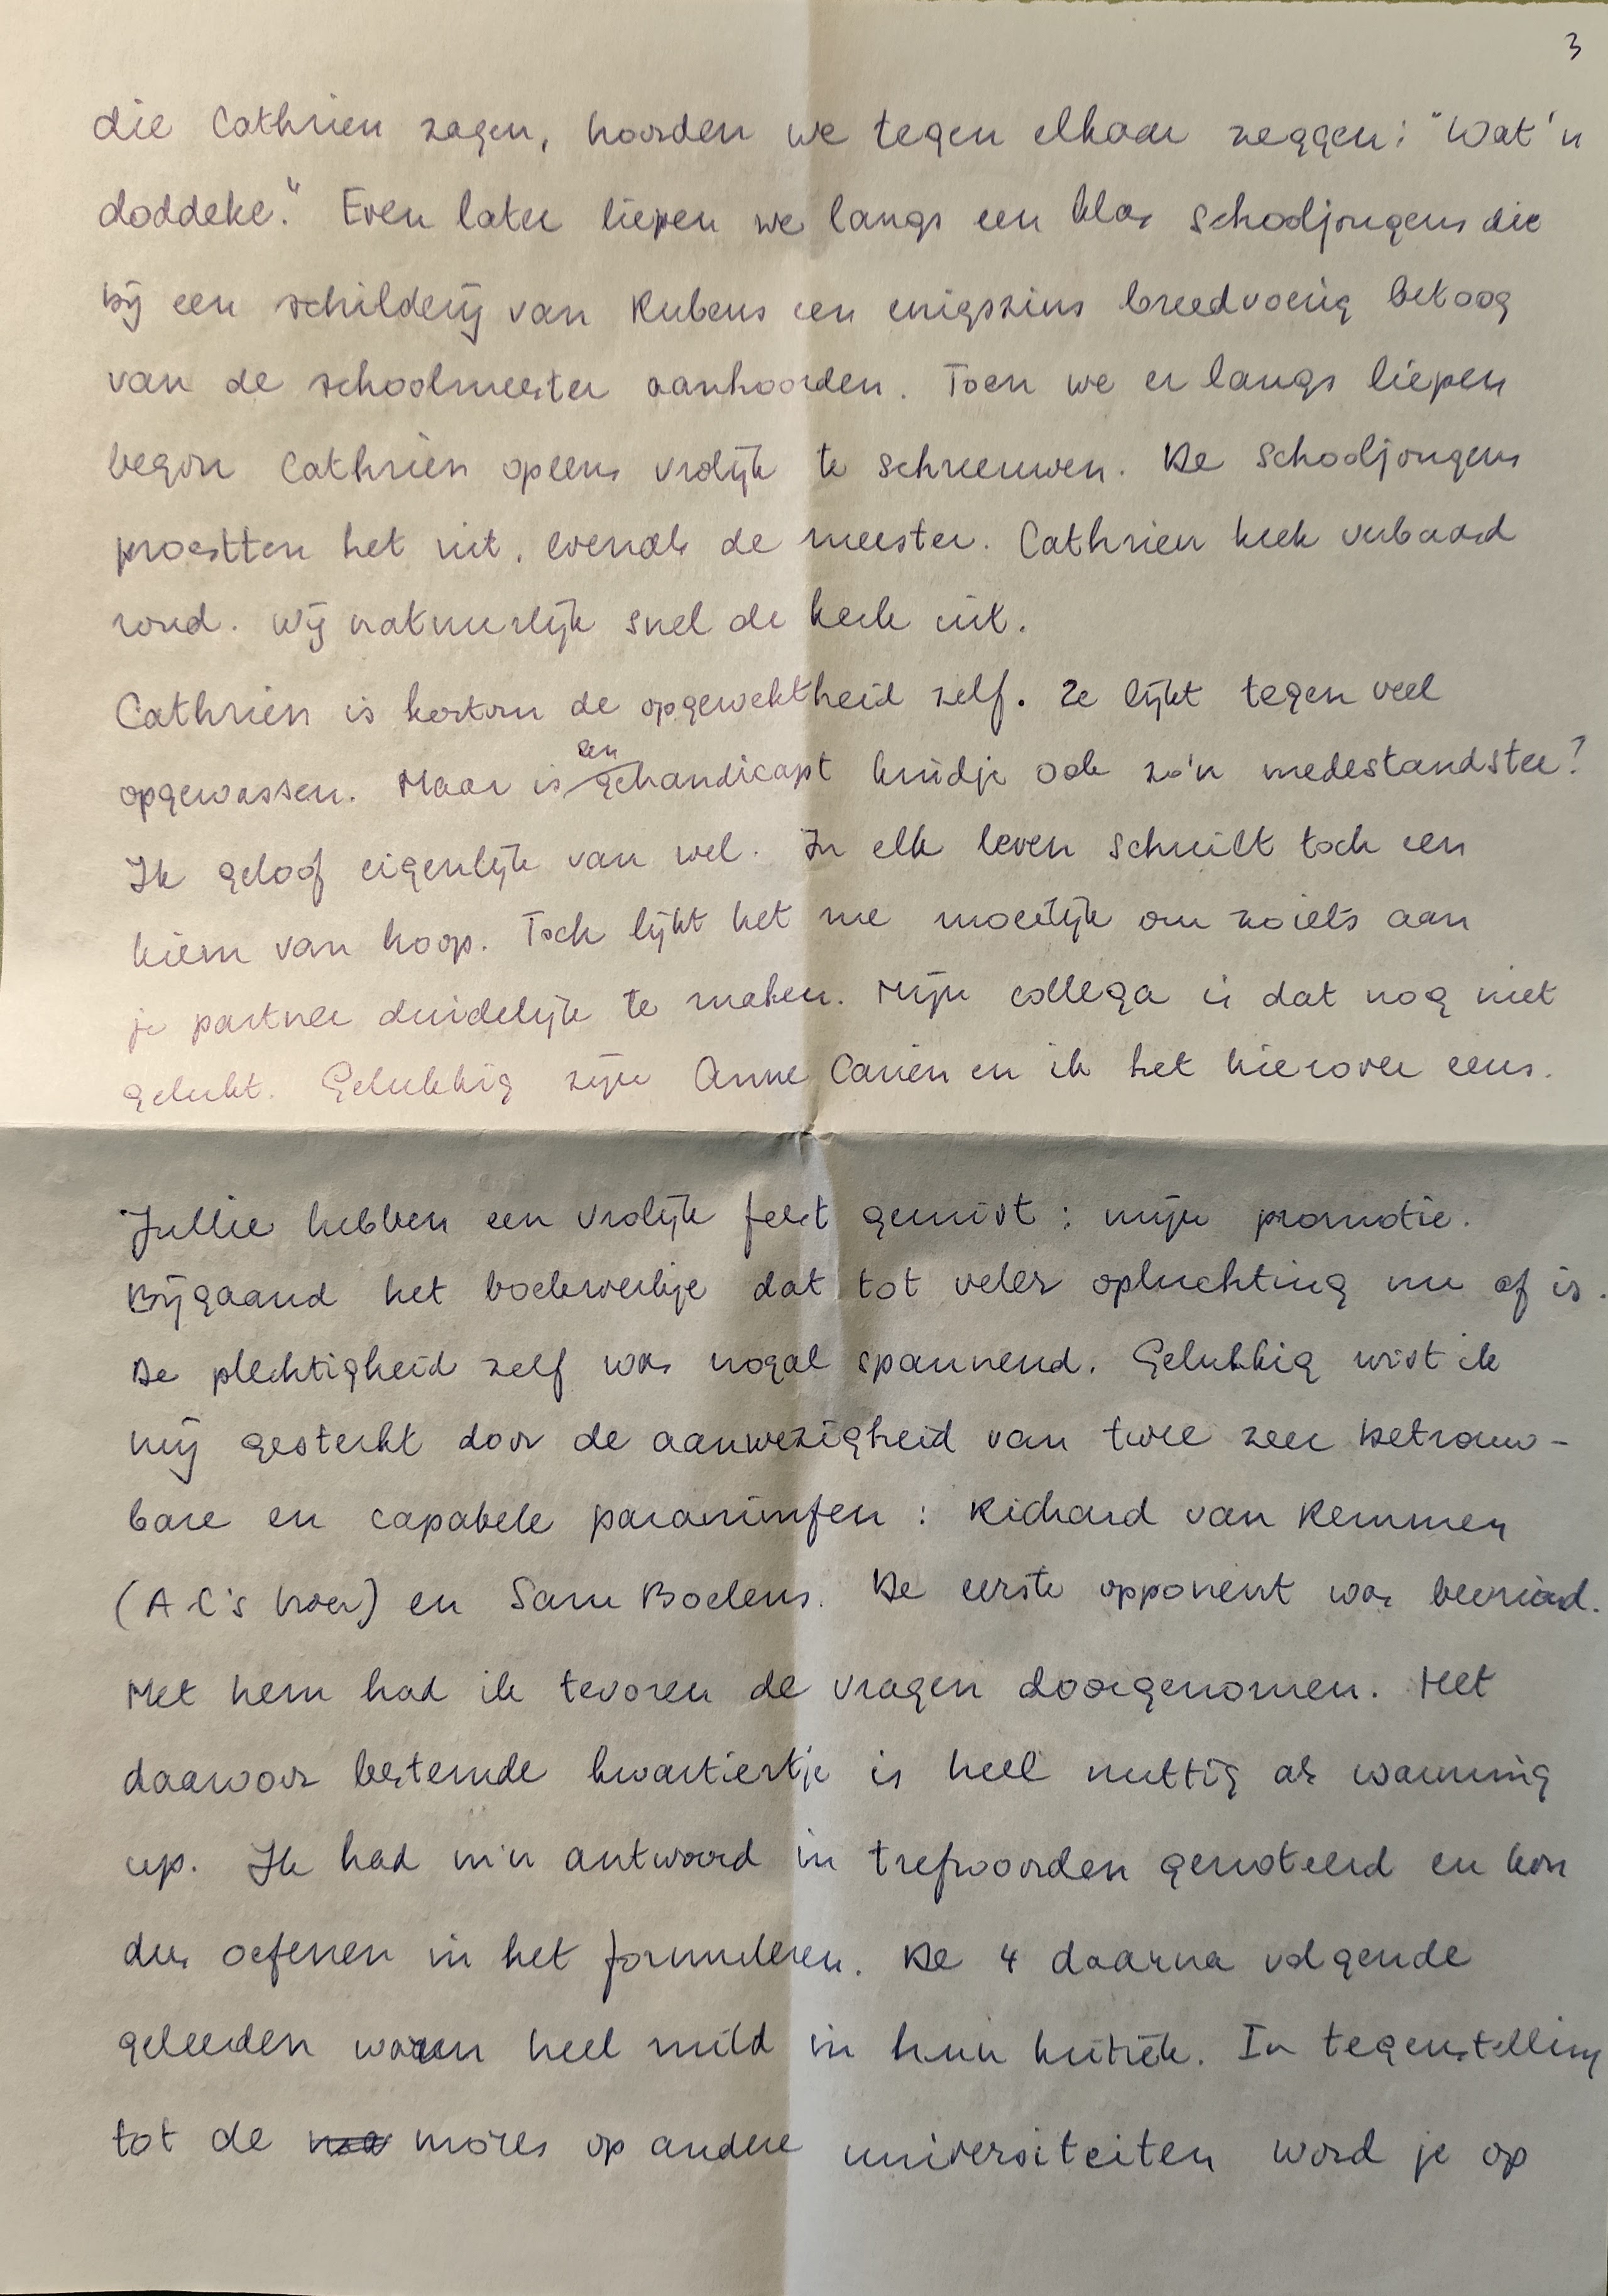 3
die Cathrien zagen, hoorden we tegen elkaar zeggen: "Wat 'n
doddeke." Even later liepen we langs een klas schooljongens die
bij een schilderij van Rubens een enigszins breedvoerig betoog
van de schoolmeester aanhoorden. Toen we er langs liepen
begon Cathrien opeens vrolijk te schreeuwen. De schooljongens
proestten het uit, evenals de meester. Cathrien keek verbaasd
rond. Wij natuurlijk snel de kerk uit.
Cathrien is kortom de opgewektheid zelf. Ze lijkt tegen veel
opgewassen. Maar is een gehandicapt kindje ook zo'n medestandster?
Ik geloof eigenlijk van wel. In elk leven schuilt toch een
kiem van hoop. Toch lijkt het me moeilijk om zoiets aan
je partner duidelijk te maken. Mijn collega is dat nog niet
gelukt. Gelukkig zijn Anne Carien en ik het hierover eens.
Jullie hebben een vrolijk feest gemist: mijn promotie.
Bijgaand het boekwerkje dat tot veler opluchting nu af is.
De plechtigheid zelf was nogal spannend. Gelukkig wist ik
mij gesterkt door de aanwezigheid van twee zeer betrouw-
bare en capabele paranimfen: Richard van Remmen
(A C's broer) en Sam Boelens. De eerste opponent was bevriend.
Met hem had ik tevoren de vragen doorgenomen. Het
daarvoor bestemde kwartiertje is heel nuttig als warming
up. Ik had m'n antwoord in trefwoorden genoteerd en kon
dus oefenen in het formuleren. De 4 daarna volgende
geleerden waren heel mild in hun kritiek. In tegenstelling
tot de mores op andere universiteiten word je op